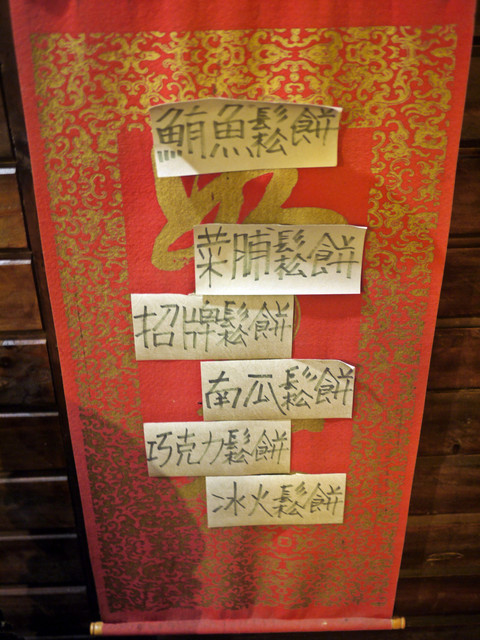 鮪魚鬆餅
菜脯鬆餅
招牌鬆餅
南瓜鬆餅
巧克力鬆餅
冰火鬆餅